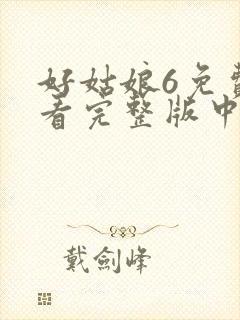 好姑娘6免费
看完整版中
戴劍峰